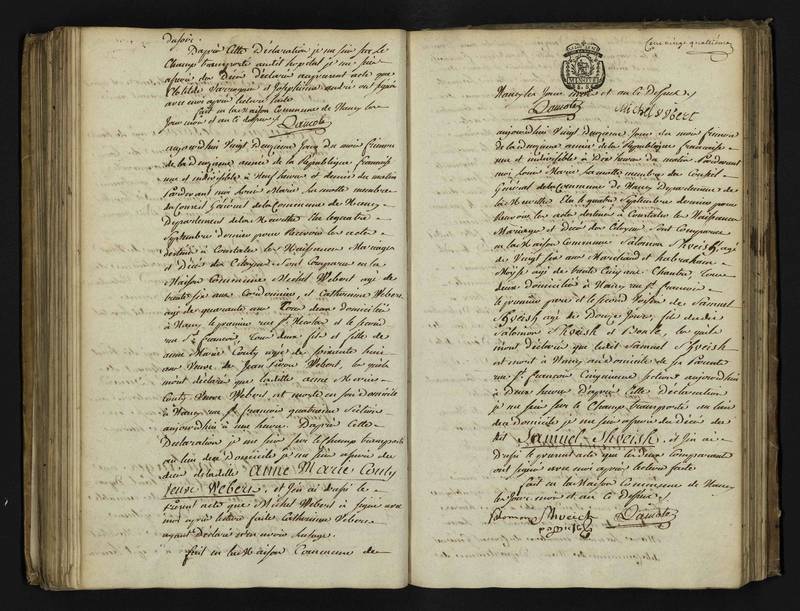 Dusoir.
D'après Cette Déclaration je me suis sur Le
Champ transporté audit hopital je me suis
assuré du Décès déclaré au présent acte que
ont signé
avec moi après lecture faite
fait en la Maison Commune de Nancy les
Jour mois et an ci dessus
Damotte
aujourdhui Vingt Deuxieme Jour du mois frimaire
de la Deuxieme année de la République francaise
une et indivisible à Neuf heure et demie du matin
Pardevant moi Louis Marie Lamotte membre
du Conseil Général de la Commune de Nancy
Département de la Meurthe Elu le quatre
Septembre dernier pour Recevoir les actes
destiné à Constater les Naissances Mariages
et Décès des Citoyens Sont Comparus en la
Maison Commune Michel Webert agé de
trente six ans Cordonnier, et Catherinne Webert
agé de quarante ans Tous deux domiciliés
à Nancy le premier rue St Nicolas et le second
rue St francois, Tous deux fils et fille de
anne Marie Couty agée de soixante huit
ans Veuve de Jean Webert, les quels
mont déclaré que ladite anne Marie
Couty Veuve Webert, est morte en son domicile
à Nancy rue St francois quatrieme Section
aujourdhui à une heure. D'après Cette
Declaration je me suis sur le champ transporté
au lieu du domicile je me suis assuré du
décès de ladite anne Marie Couty
Veuve Webert, et j'en ai dressé le
Présent acte que Michel Webert à signé avec
moi après lecture faite Catherinne Webert
ayant Déclaré n'en avoir l'usage.
fait en la Maison Commune de
Cent vingt quatrieme
Nancy les Jour mois et an ci Dessus
Damotte
Michel Webert
aujourdhui Vingt Deuxieme Jour du mois frimaire
de la Deuxieme année de la République francaise
une et indivisible à Dix heure du matin Pardevant
moi Louis Marie Lamotte membre du Conseil
Général de la Commune de Nancy Département de
la Meurthe Elu le quatre Septembre dernier pour
Recevoir les actes destiné à Constater les Naissances
Mariages et Décès des Citoyens Sont Comparus
en la Maison Commune Salomon Shveish, agé
de Vingt six ans Marchand et habraham
Moyse agé de trente Cinq ans Chantre, Tous
deux domiciliés à Nancy rue St francois
le premier père et le second Voisin de Samuel
Shveish agé de Douze Jours, fils dudit
Salomon Shveish les quels
mont déclaré que ledit Samuel Shveish
est mort à Nancy au domicile de ses Parents
rue St francois Cinquieme Section aujourdhui
à Deux heure D'après Cette Déclaration
je me suis sur le Champ transporté au lieu
du Domicile je me suis assuré du Décès du
dit Samuel Shveish, et j'en ai
Dressé le présent acte que les deux Comparants
ont signé avec moi après lecture faite
fait en la Maison Commune de Nancy
les Jours mois et an ci Dessus
Salomon Shveich
Damotte